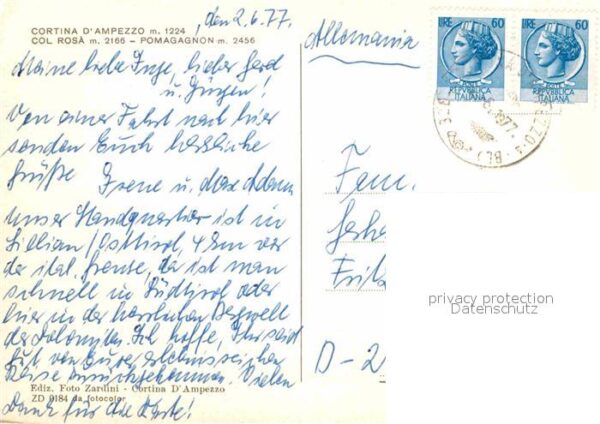 CORTINA D'AMPEZZO m. 1224
COL ROSÀ m. 2166 - POMAGAGNON m. 2456
, den 2.6.77.
Meine liebe Inge, lieber Gerd
u. Jürgen!
Von einer Fahrt nach hier
senden Euch herzliche
Grüße Irene u. Max
Unser Standquartier ist in
Sillian/Osttirol, 4 km vor
der ital. Grenze, da ist man
schnell in Südtirol oder
hier in der herrlichen Bergwelt
der Dolomiten. Ich hoffe, Ihr seid
gut von Eurer erlebnisreichen
Reise zurückgekommen. Vielen
Dank für die Karte!
Ediz. Foto Zardini - Cortina D'Ampezzo
ZD 9184 da fotocolor
Allemania
LIRE 60
REPVBBLICA
ITALIANA
LIRE 60
REPVBBLICA
ITALIANA
1977
Fam.
D-2
privacy protection
Datenschutz